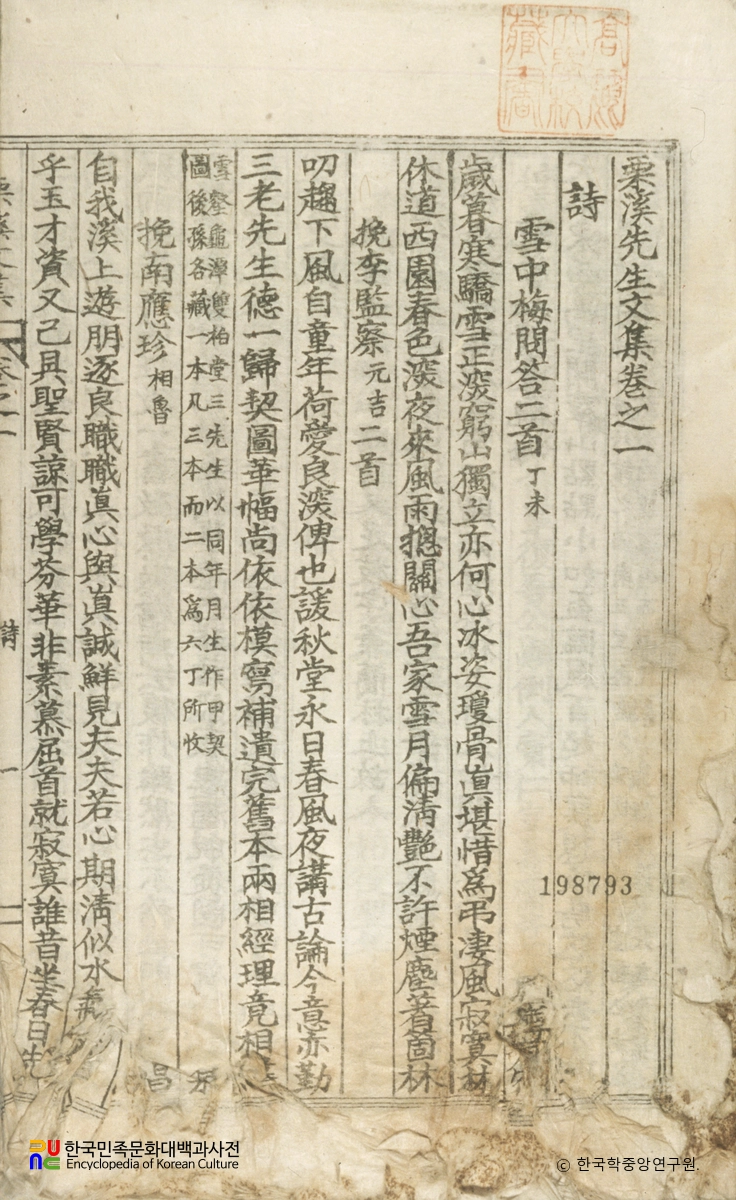 栗溪先生文集卷之一
詩
雪中梅問答二首 丁未
歲暮寒驕雪正深窮山獨立亦何心冰姿瓊骨眞堪惜爲弔凄風寂寞林
休道西園春色深夜來風雨摠關心吾家雪月偏淸艶不許煙塵著箇林
挽李監察 元吉 二首
叨趨下風自童年荷愛良深俾也諼秋堂永日春風夜講古論今意亦勤
三老先生德一歸契圖華幅尙依依模寫補遺完舊本兩相經理竟相
雪壑龜潭雙柏堂三先生以同年月生作甲契
圖後孫各藏一本凡三本而二本爲六丁所收
挽南應珍 相魯
自我溪上遊朋逐良職職眞心與眞誠鮮見夫夫若心期淸似水氣
乎玉才資又己具聖賢諒可學芬華非素慕屈首就寂寞誰昔坐春日先
詩
一
198793
한국민족문화대백과사전
Encyclopedia of Korean Culture
© 한국학중앙연구원.